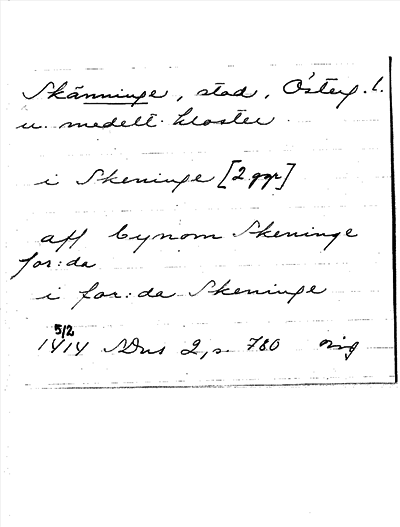 Skänninge, stad, Österg. l.
u. medelt. kloster
i Skeninge [2 ggr]
aff bynom Skeninge
for:da
i for:da Skeninge
5/2
1414 SDns 2, s 780 orig